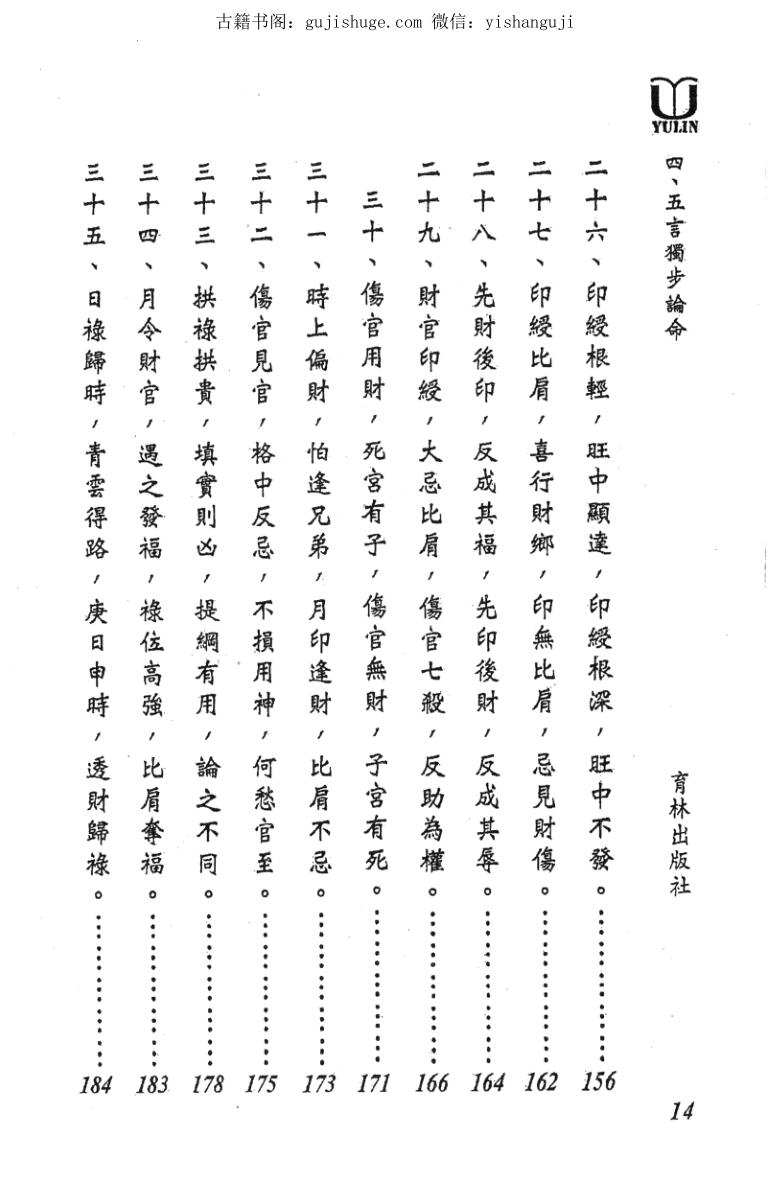 古籍书阁：gujishuge.com 微信：yishanguji
YULIN
四、五言獨步論命
二十六、印綬根輕，旺中顯達，印綬根深，旺中不發。……………156
二十七、印綬比肩，喜行財鄉，印無比肩，忌見財傷。……………162
二十八、先財後印，反成其福，先印後財，反成其辱。……………164
二十九、財官印綬，大忌比肩，傷官七殺，反助為權。……………166
三十、傷官用財，死宮有子，傷官無財，子宮有死。……………171
三十一、時上偏財，怕逢兄弟，月印逢財，比肩不忌。……………173
三十二、傷官見官，格中反忌，不損用神，何愁官至。……………175
三十三、拱祿拱貴，填實則凶，提綱有用，論之不同。……………178
三十四、月令財官，遇之發福，祿位高強，比肩奪福。……………183
三十五、日祿歸時，青雲得路，庚日申時，透財歸祿。……………184
育林出版社
14